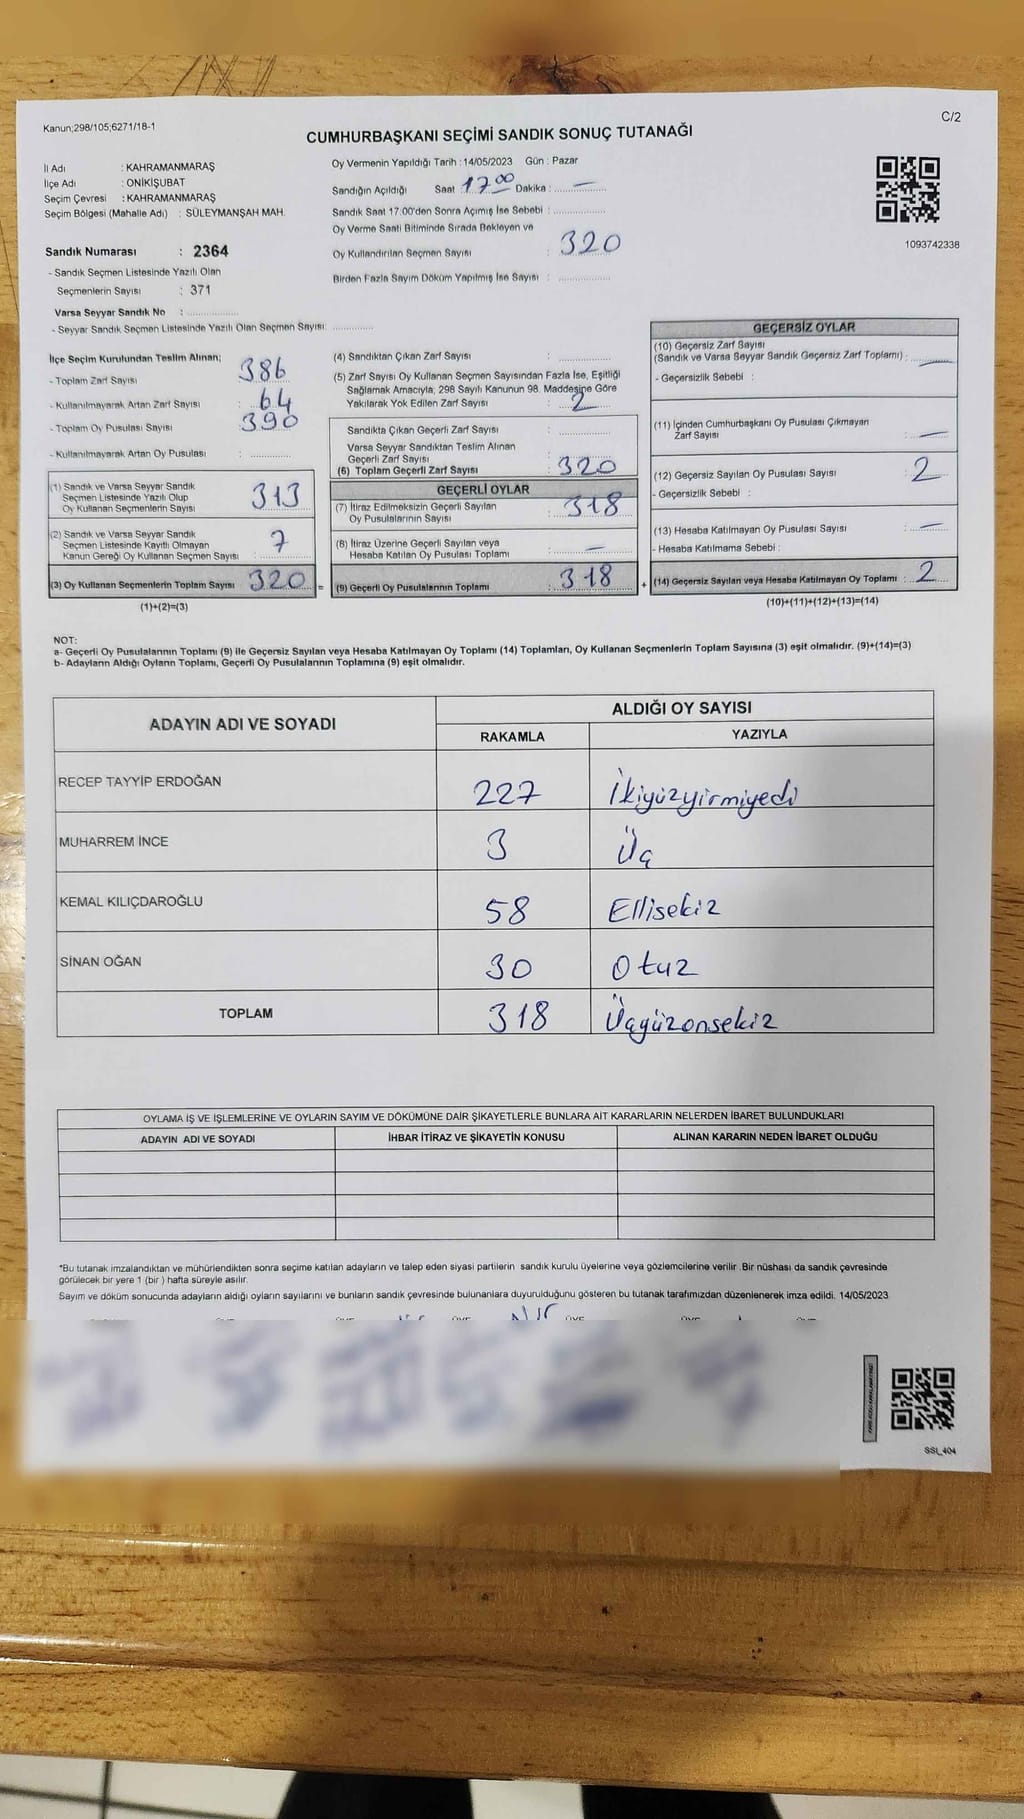 Kanun;298/105;6271/18-1
C/2
CUMHURBAŞKANI SEÇİMİ SANDIK SONUÇ TUTANAĞI
İl Adı : KAHRAMANMARAŞ
İlçe Adı : ONİKİŞUBAT
Seçim Çevresi : KAHRAMANMARAŞ
Seçim Bölgesi (Mahalle Adı) : SÜLEYMANŞAH MAH.
Oy Vermenin Yapıldığı Tarih : 14/05/2023 Gün : Pazar
Sandığın Açıldığı Saat 17.00 Dakika : —
Sandık Saat 17.00'den Sonra Açımış İse Sebebi :
Oy Verme Saati Bitiminde Sırada Bekleyen ve
Oy Kullandırılan Seçmen Sayısı : 320
Birden Fazla Sayım Döküm Yapılmış İse Sayısı :
1093742338
Sandık Numarası : 2364
- Sandık Seçmen Listesinde Yazılı Olan
Seçmenlerin Sayısı : 371
Varsa Seyyar Sandık No :
- Seyyar Sandık Seçmen Listesinde Yazılı Olan Seçmen Sayısı:
İlçe Seçim Kurulundan Teslim Alınan;
- Toplam Zarf Sayısı : 386
- Kullanılmayarak Artan Zarf Sayısı : 64
- Toplam Oy Pusulası Sayısı : 390
- Kullanılmayarak Artan Oy Pusulası :
(1) Sandık ve Varsa Seyyar Sandık
Seçmen Listesinde Yazılı Olup
Oy Kullanan Seçmenlerin Sayısı : 313
(2) Sandık ve Varsa Seyyar Sandık
Seçmen Listesinde Kayıtlı Olmayan
Kanun Gereği Oy Kullanan Seçmen Sayısı : 7
(3) Oy Kullanan Seçmenlerin Toplam Sayısı : 320 =
(1)+(2)=(3)
(4) Sandıktan Çıkan Zarf Sayısı :
(5) Zarf Sayısı Oy Kullanan Seçmen Sayısından Fazla İse, Eşitliği
Sağlamak Amacıyla; 298 Sayılı Kanunun 98. Maddesine Göre
Yakılarak Yok Edilen Zarf Sayısı : 2
Sandıkta Çıkan Geçerli Zarf Sayısı :
Varsa Seyyar Sandıktan Teslim Alınan
Geçerli Zarf Sayısı :
(6) Toplam Geçerli Zarf Sayısı : 320
GEÇERLİ OYLAR
(7) İtiraz Edilmeksizin Geçerli Sayılan
Oy Pusulalarının Sayısı : 318
(8) İtiraz Üzerine Geçerli Sayılan veya
Hesaba Katılan Oy Pusulası Toplamı : —
(9) Geçerli Oy Pusulalarının Toplamı : 318 +
GEÇERSİZ OYLAR
(10) Geçersiz Zarf Sayısı
(Sandık ve Varsa Seyyar Sandık Geçersiz Zarf Toplamı) : —
- Geçersizlik Sebebi :
(11) İçinden Cumhurbaşkanı Oy Pusulası Çıkmayan
Zarf Sayısı : —
(12) Geçersiz Sayılan Oy Pusulası Sayısı : 2
- Geçersizlik Sebebi :
(13) Hesaba Katılmayan Oy Pusulası Sayısı : —
- Hesaba Katılmama Sebebi :
(14) Geçersiz Sayılan veya Hesaba Katılmayan Oy Toplamı : 2
(10)+(11)+(12)+(13)=(14)
NOT:
a- Geçerli Oy Pusulalarının Toplamı (9) ile Geçersiz Sayılan veya Hesaba Katılmayan Oy Toplamı (14) Toplamları, Oy Kullanan Seçmenlerin Toplam Sayısına (3) eşit olmalıdır. (9)+(14)=(3)
b- Adayların Aldığı Oyların Toplamı, Geçerli Oy Pusulalarının Toplamına (9) eşit olmalıdır.
ADAYIN ADI VE SOYADI
ALDIĞI OY SAYISI
RAKAMLA YAZIYLA
RECEP TAYYİP ERDOĞAN 227 İkiyüzyirmiyedi
MUHARREM İNCE 3 Üç
KEMAL KILIÇDAROĞLU 58 Ellisekiz
SİNAN OĞAN 30 Otuz
TOPLAM 318 Üçyüzonsekiz
OYLAMA İŞ VE İŞLEMLERİNE VE OYLARIN SAYIM VE DÖKÜMÜNE DAİR ŞİKAYETLERLE BUNLARA AİT KARARLARIN NELERDEN İBARET BULUNDUKLARI
ADAYIN ADI VE SOYADI İHBAR İTİRAZ VE ŞİKAYETİN KONUSU ALINAN KARARIN NEDEN İBARET OLDUĞU
*Bu tutanak imzalandıktan ve mühürlendikten sonra seçime katılan adayların ve talep eden siyasi partilerin sandık kurulu üyelerine veya gözlemcilerine verilir .Bir nüshası da sandık çevresinde
görülecek bir yere 1 (bir ) hafta süreyle asılır.
Sayım ve döküm sonucunda adayların aldığı oyların sayılarını ve bunların sandık çevresinde bulunanlara duyurulduğunu gösteren bu tutanak tarafımızdan düzenlenerek imza edildi. 14/05/2023
SSI_404